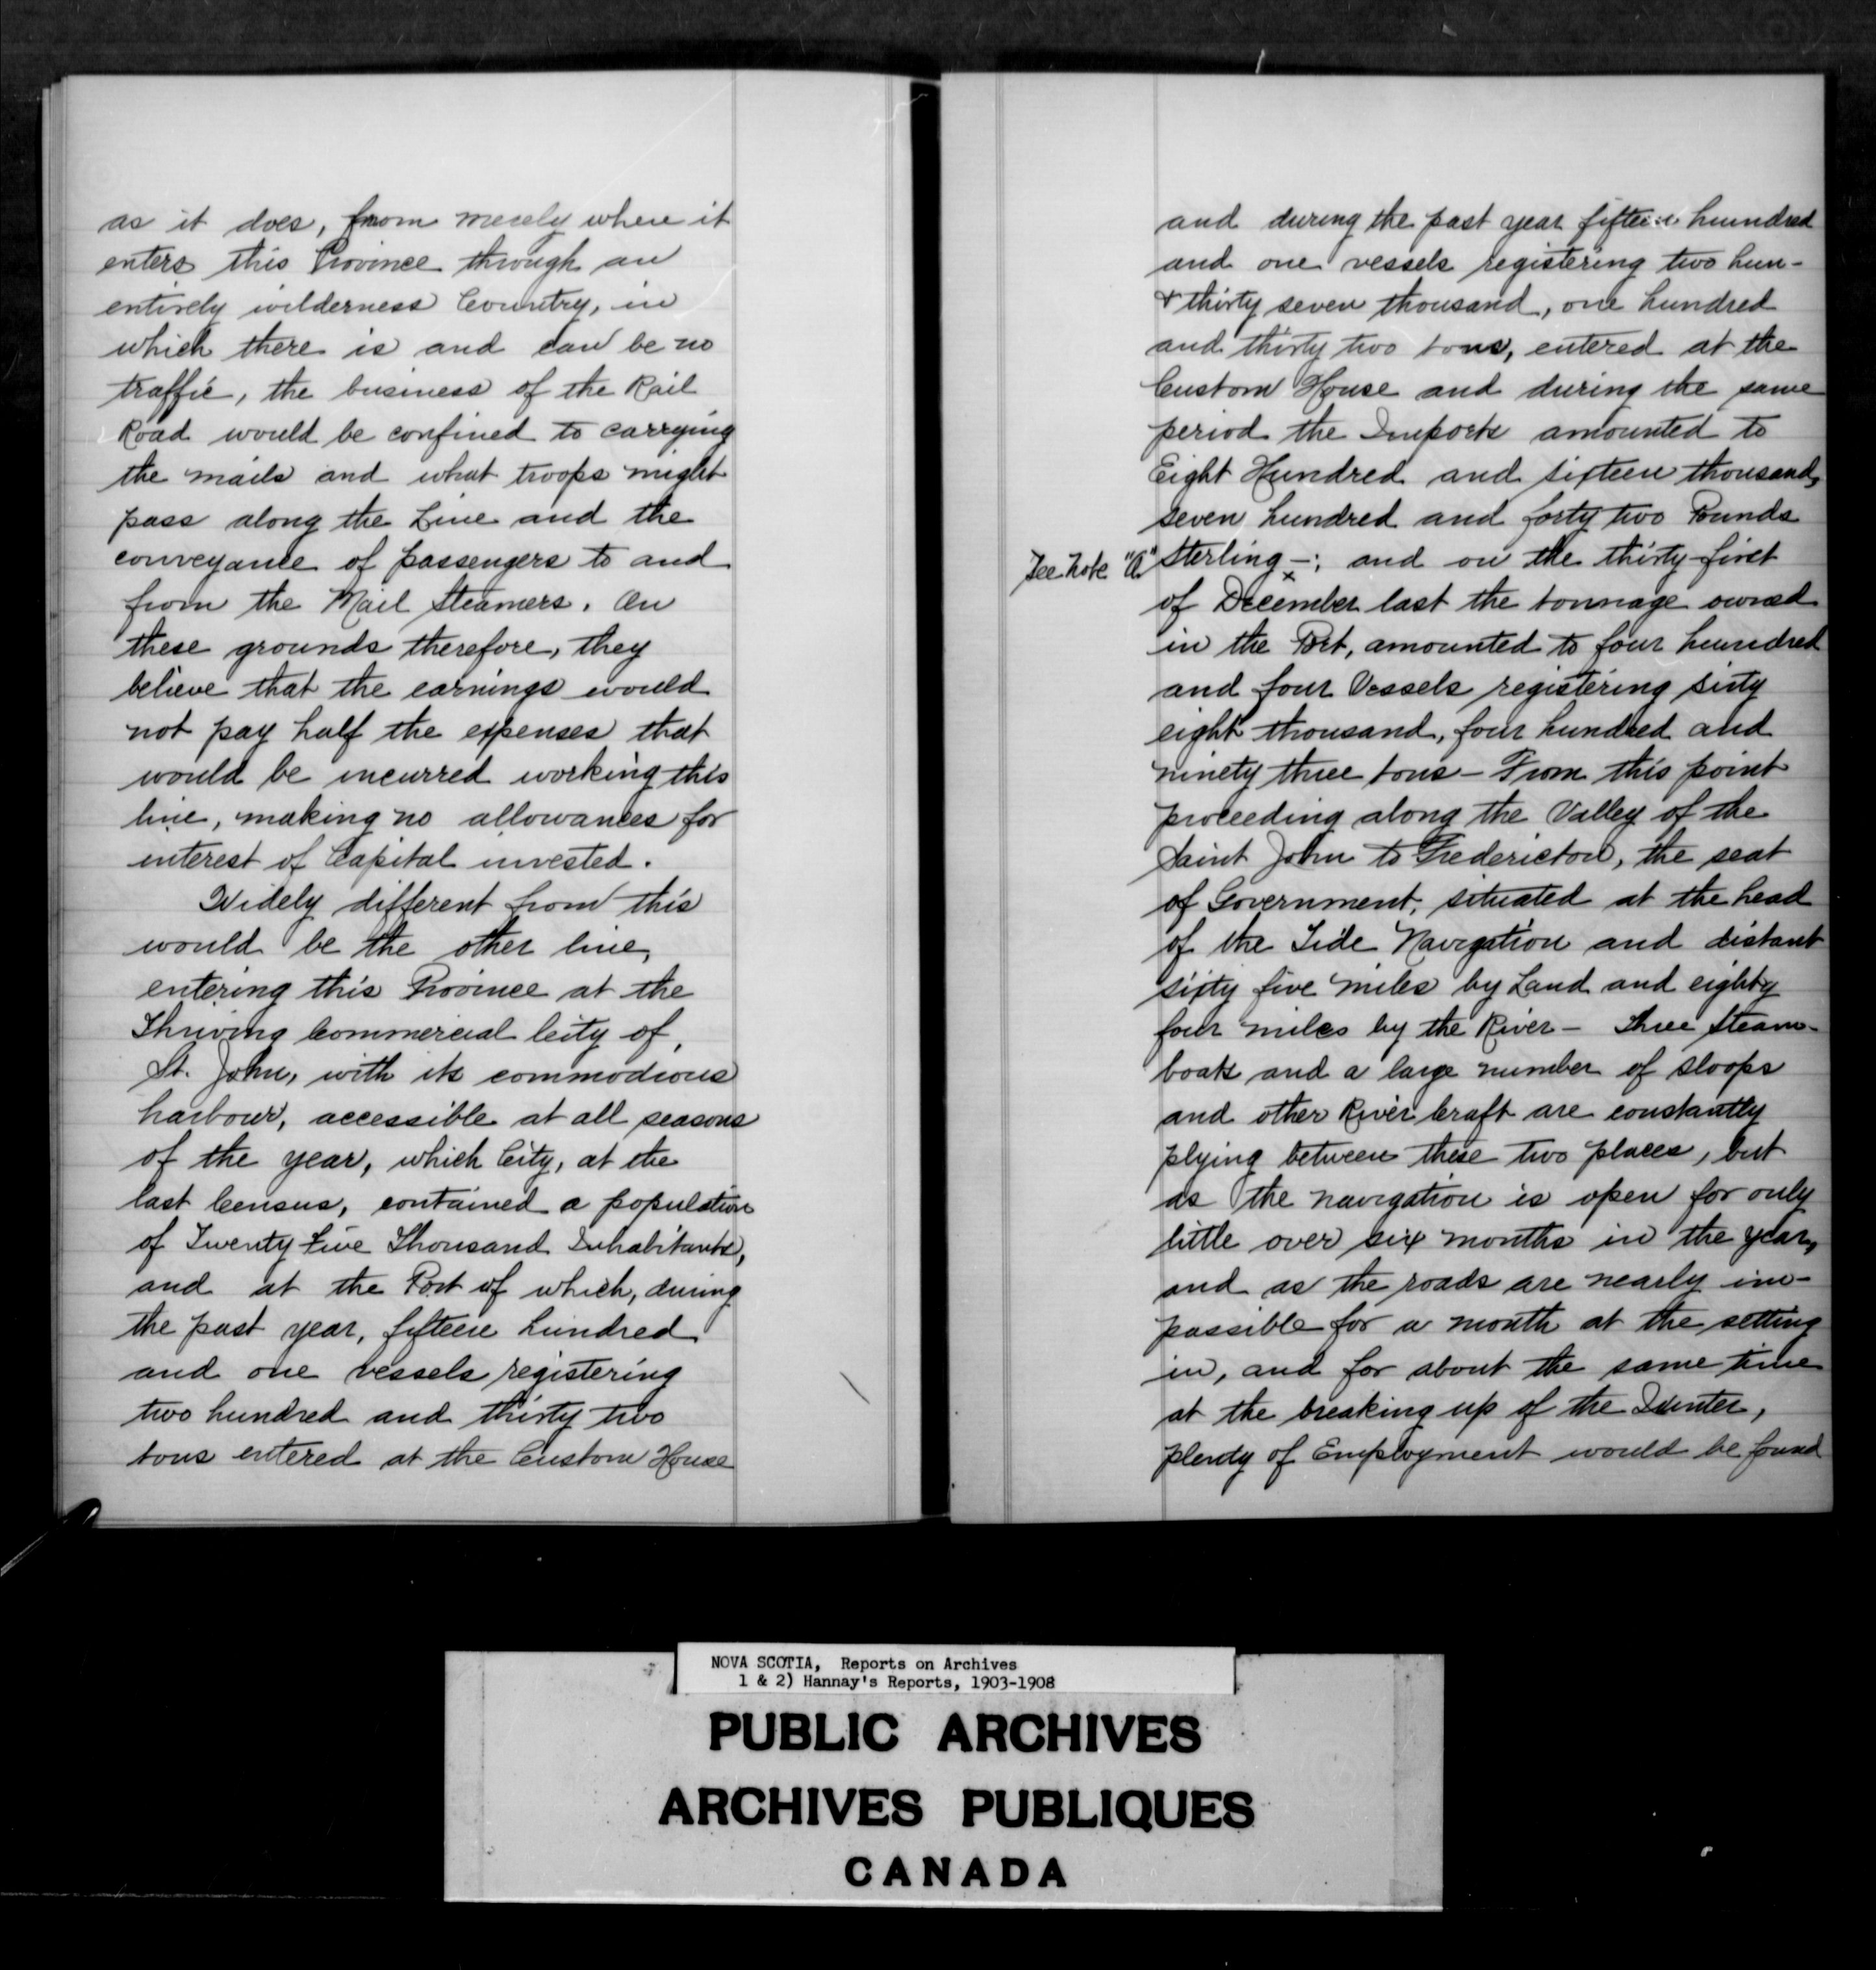 as it does, from merely where it
enters this Province through an
entirely wilderness Country, in
which there is and can be no
traffic, the business of the Rail
Road would be confined to carrying
the mails and what troops might
pass along the Line and the
conveyance of passengers to and
from the Mail Steamers. On
these grounds therefore, they
believe that the earnings would
not pay half the expenses that
would be incurred working this
line, making no allowances for
interest of Capital invested.
Widely different from this
would be the other line,
entering this Province at the
Thriving Commercial City of,
St. John, with its commodious
harbour, accessible at all seasons
of the year, which City, at the
last Census, contained a population
of Twenty five Thousand Inhabitants,
and at the Port of which, during
the past year, fifteen hundred
and one vessels registering
two hundred and thirty two
tons entered at the Custom House
and during the past year fifteen hundred
and one vessels registering two hun-
& thirty seven thousand, one hundred
and thirty two tons, entered at the
Custom House and during the same
period the Imports amounted to
Eight Hundred and sixteen thousand,
seven hundred and forty two Pounds
See Note "A" Sterling -; and on the thirty-first
x
of December last the tonnage owned
in the Port, amounted to four hundred
and four Vessels registering sixty
eight thousand, four hundred and
ninety three tons - From this point
proceeding along the Valley of the
Saint John to Fredericton, the seat
of Government, situated at the head
of the Tide Navigation and distant
sixty five miles by Land and eighty
four miles by the River - Three Steam-
boats and a large number of Sloops
and other River Craft are constantly
plying between these two places, but
as the navigation is open for only
little over six months in the year,
and as the roads are nearly im-
passible for a month at the setting
in, and for about the same time
at the breaking up of the Winter,
plenty of Employment would be found
NOVA SCOTIA, Reports on Archives
1 & 2) Hannay's Reports, 1903-1908
PUBLIC ARCHIVES
ARCHIVES PUBLIQUES
CANADA